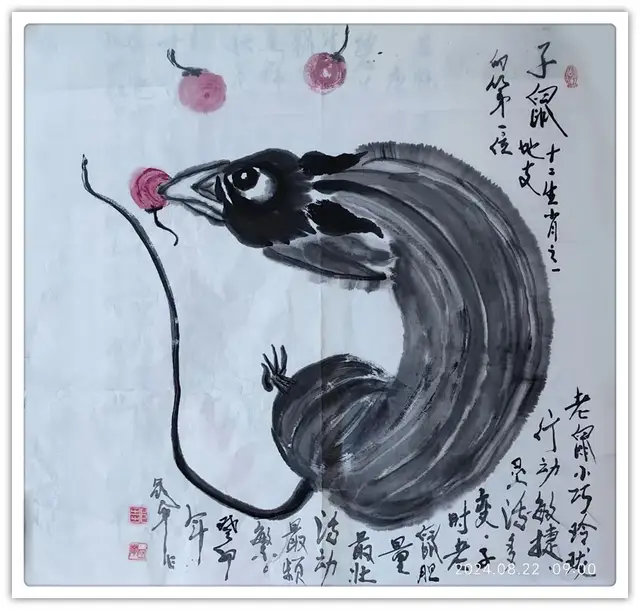 子鼠
十二生肖之一
地支
的第一位
老鼠小巧玲珑
行动敏捷
灵活多
变。子
时老
鼠胆
量
最壮
活动
最频
繁。
癸卯
年
2024.08.22 09:00